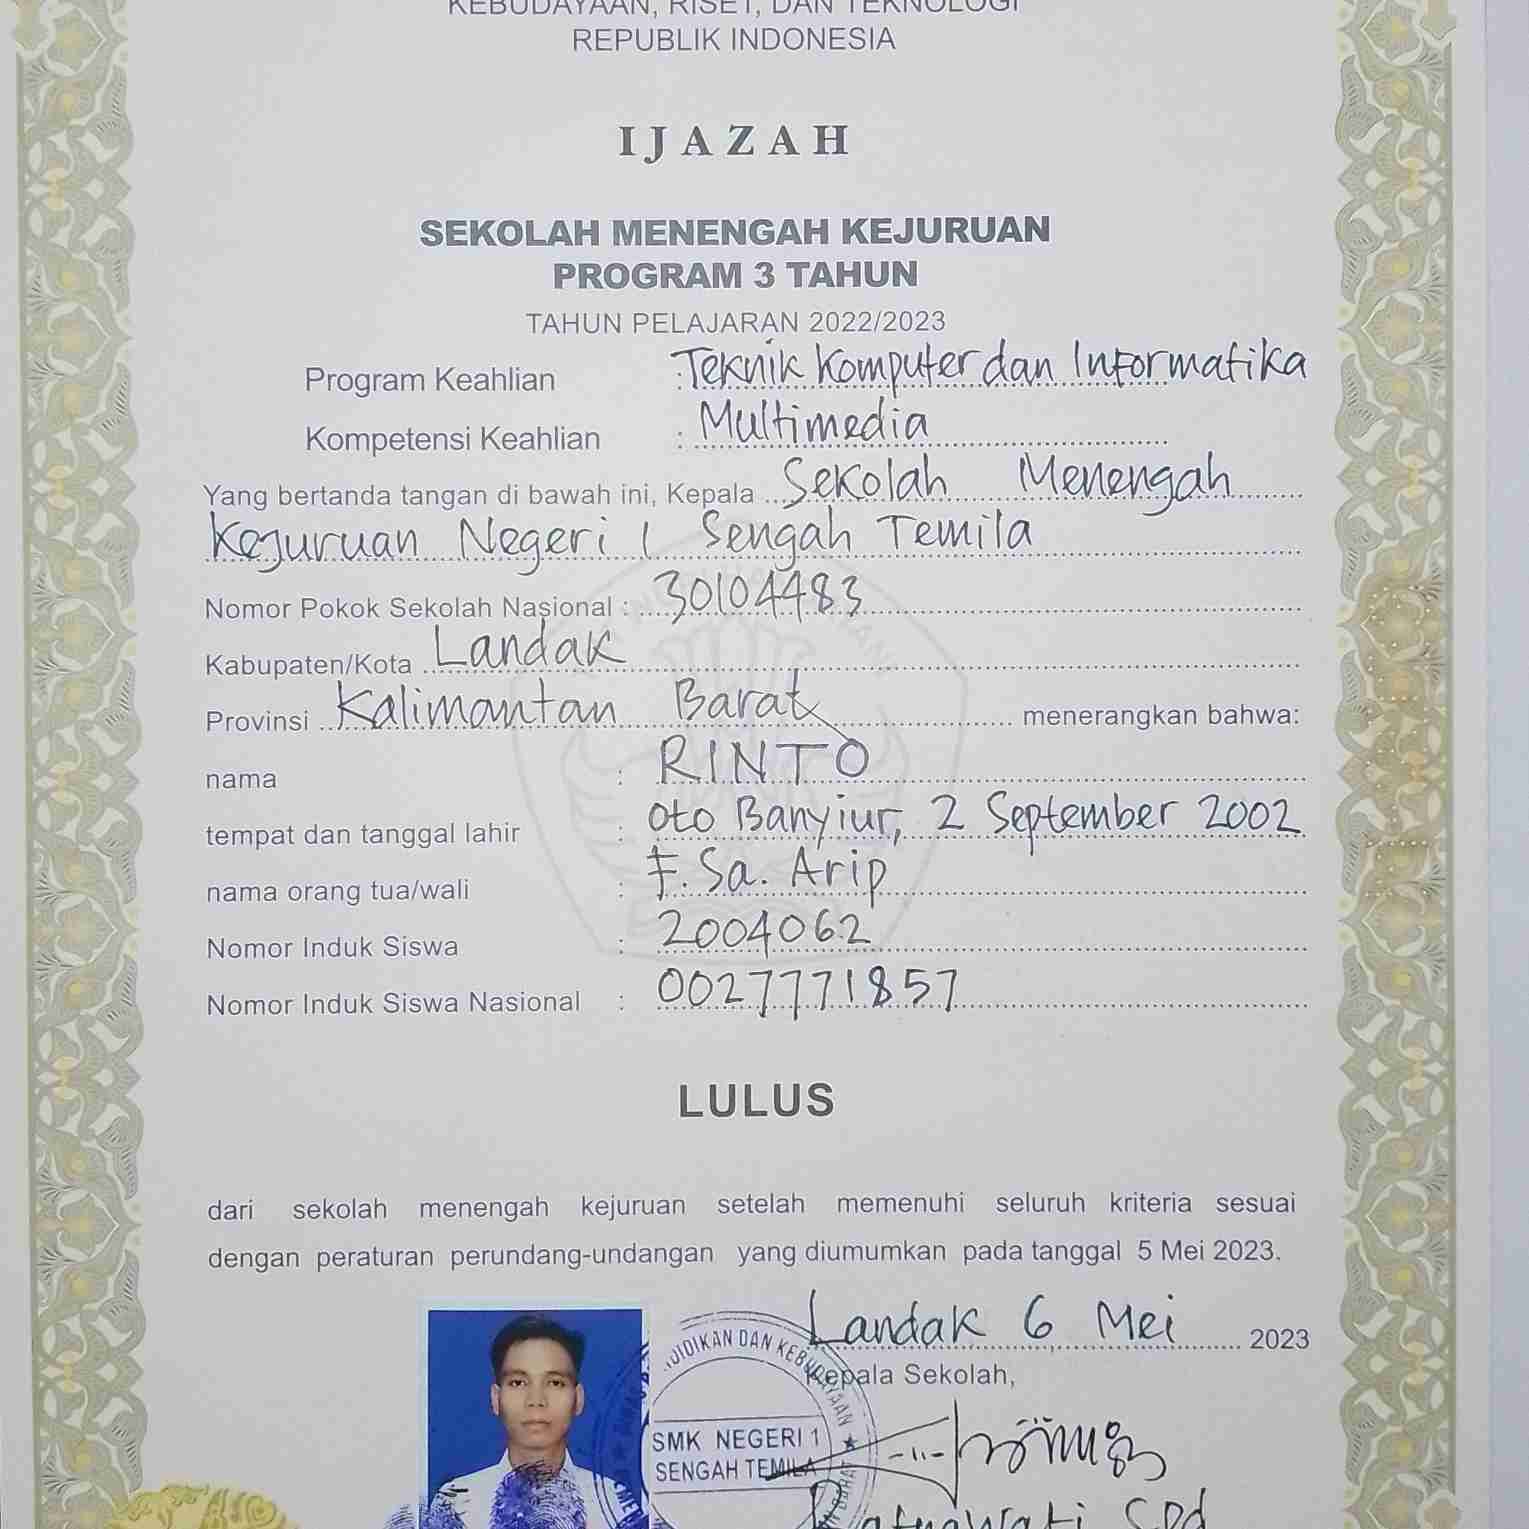 KEBUDAYAAN, RISET, DAN TEKNOLOGI
REPUBLIK INDONESIA
IJAZAH
SEKOLAH MENENGAH KEJURUAN
PROGRAM 3 TAHUN
TAHUN PELAJARAN 2022/2023
Program Keahlian : Teknik Komputer dan Informatika
Kompetensi Keahlian : Multimedia
Yang bertanda tangan di bawah ini, Kepala Sekolah Menengah
Kejuruan Negeri 1 Sengah Temila
Nomor Pokok Sekolah Nasional : 30104483
Kabupaten/Kota Landak
Provinsi Kalimantan Barat menerangkan bahwa:
nama : RINTO
tempat dan tanggal lahir : Oto Banyiur, 2 September 2002
nama orang tua/wali : F. Sa. Arip
Nomor Induk Siswa : 2004062
Nomor Induk Siswa Nasional : 0027771857
LULUS
dari sekolah menengah kejuruan setelah memenuhi seluruh kriteria sesuai
dengan peraturan perundang-undangan yang diumumkan pada tanggal 5 Mei 2023.
Landak 6 Mei 2023
Kepala Sekolah,
DIDIKAN DAN KEBUDAYAAN
SMK NEGERI 1
SENGAH TEMILA
S.Pd